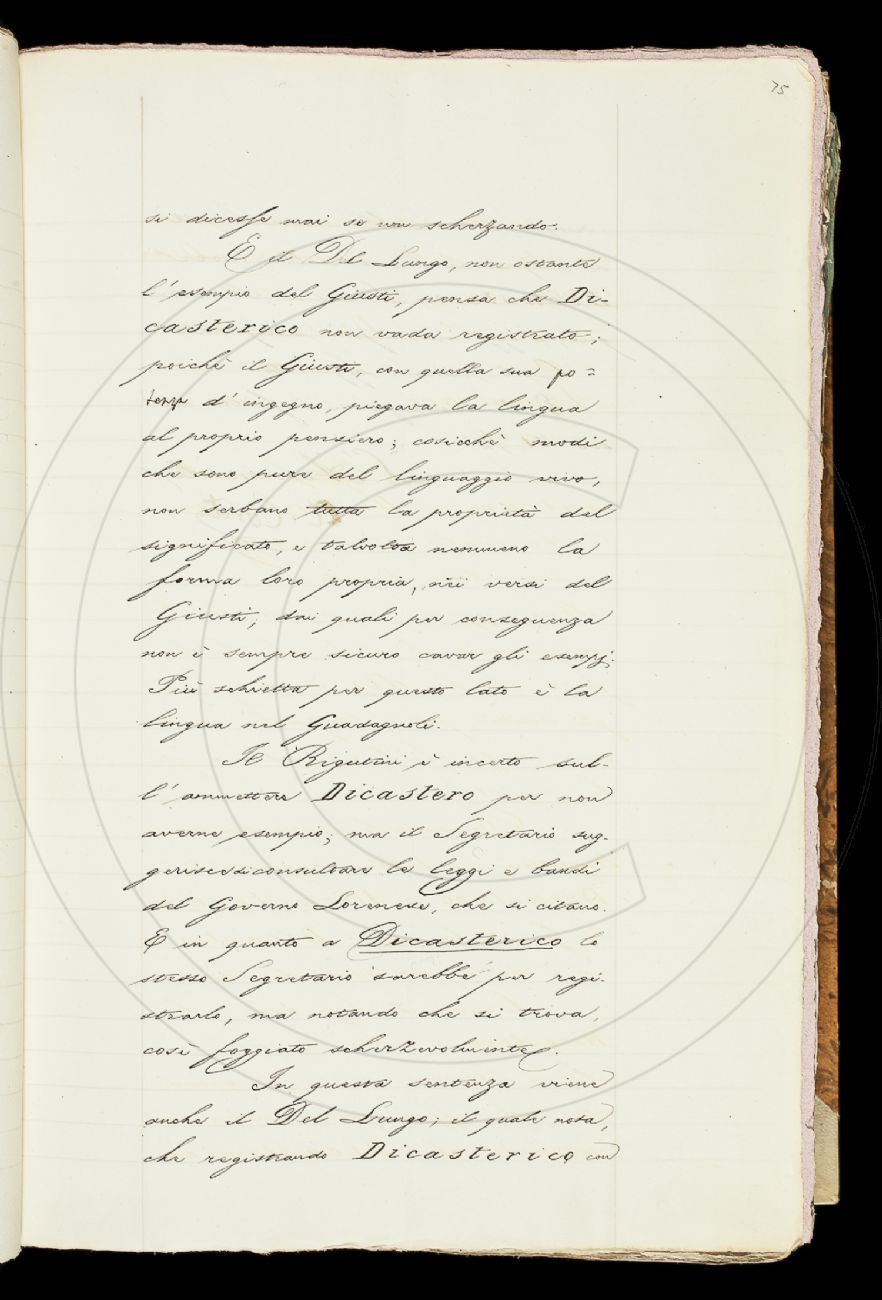 75
si dicesse mai se non scherzando.
E il Del Lungo, non ostante
l'esempio del Giusti, pensa che Di-
casterico non vada registrato;
poichè il Giusti, con quella sua po=
tenza d'ingegno, piegava la lingua
al proprio pensiero; cosicchè modi
che sono pure del linguaggio vivo,
non serbano tutta la proprietà del
significato, e talvolta nemmeno la
forma loro propria, nei versi del
Giusti; dai quali per conseguenza
non è sempre sicuro cavar gli esempj.
Più schietta per questo lato è la
lingua nel Guadagnoli.
Il Rigutini è incerto sul-
l'ammettere Dicastero per non
averne esempio; ma il Segretario sug-
gerisce di consultare le leggi e bandi
del Governo Lorenese, che si citano.
E in quanto a Dicasterico lo
stesso Segretario sarebbe per regi-
strarlo, ma notando che si trova,
così foggiato scherzevolmente.
In questa sentenza viene
anche il Del Lungo; il quale nota,
che registrando Dicasterico con